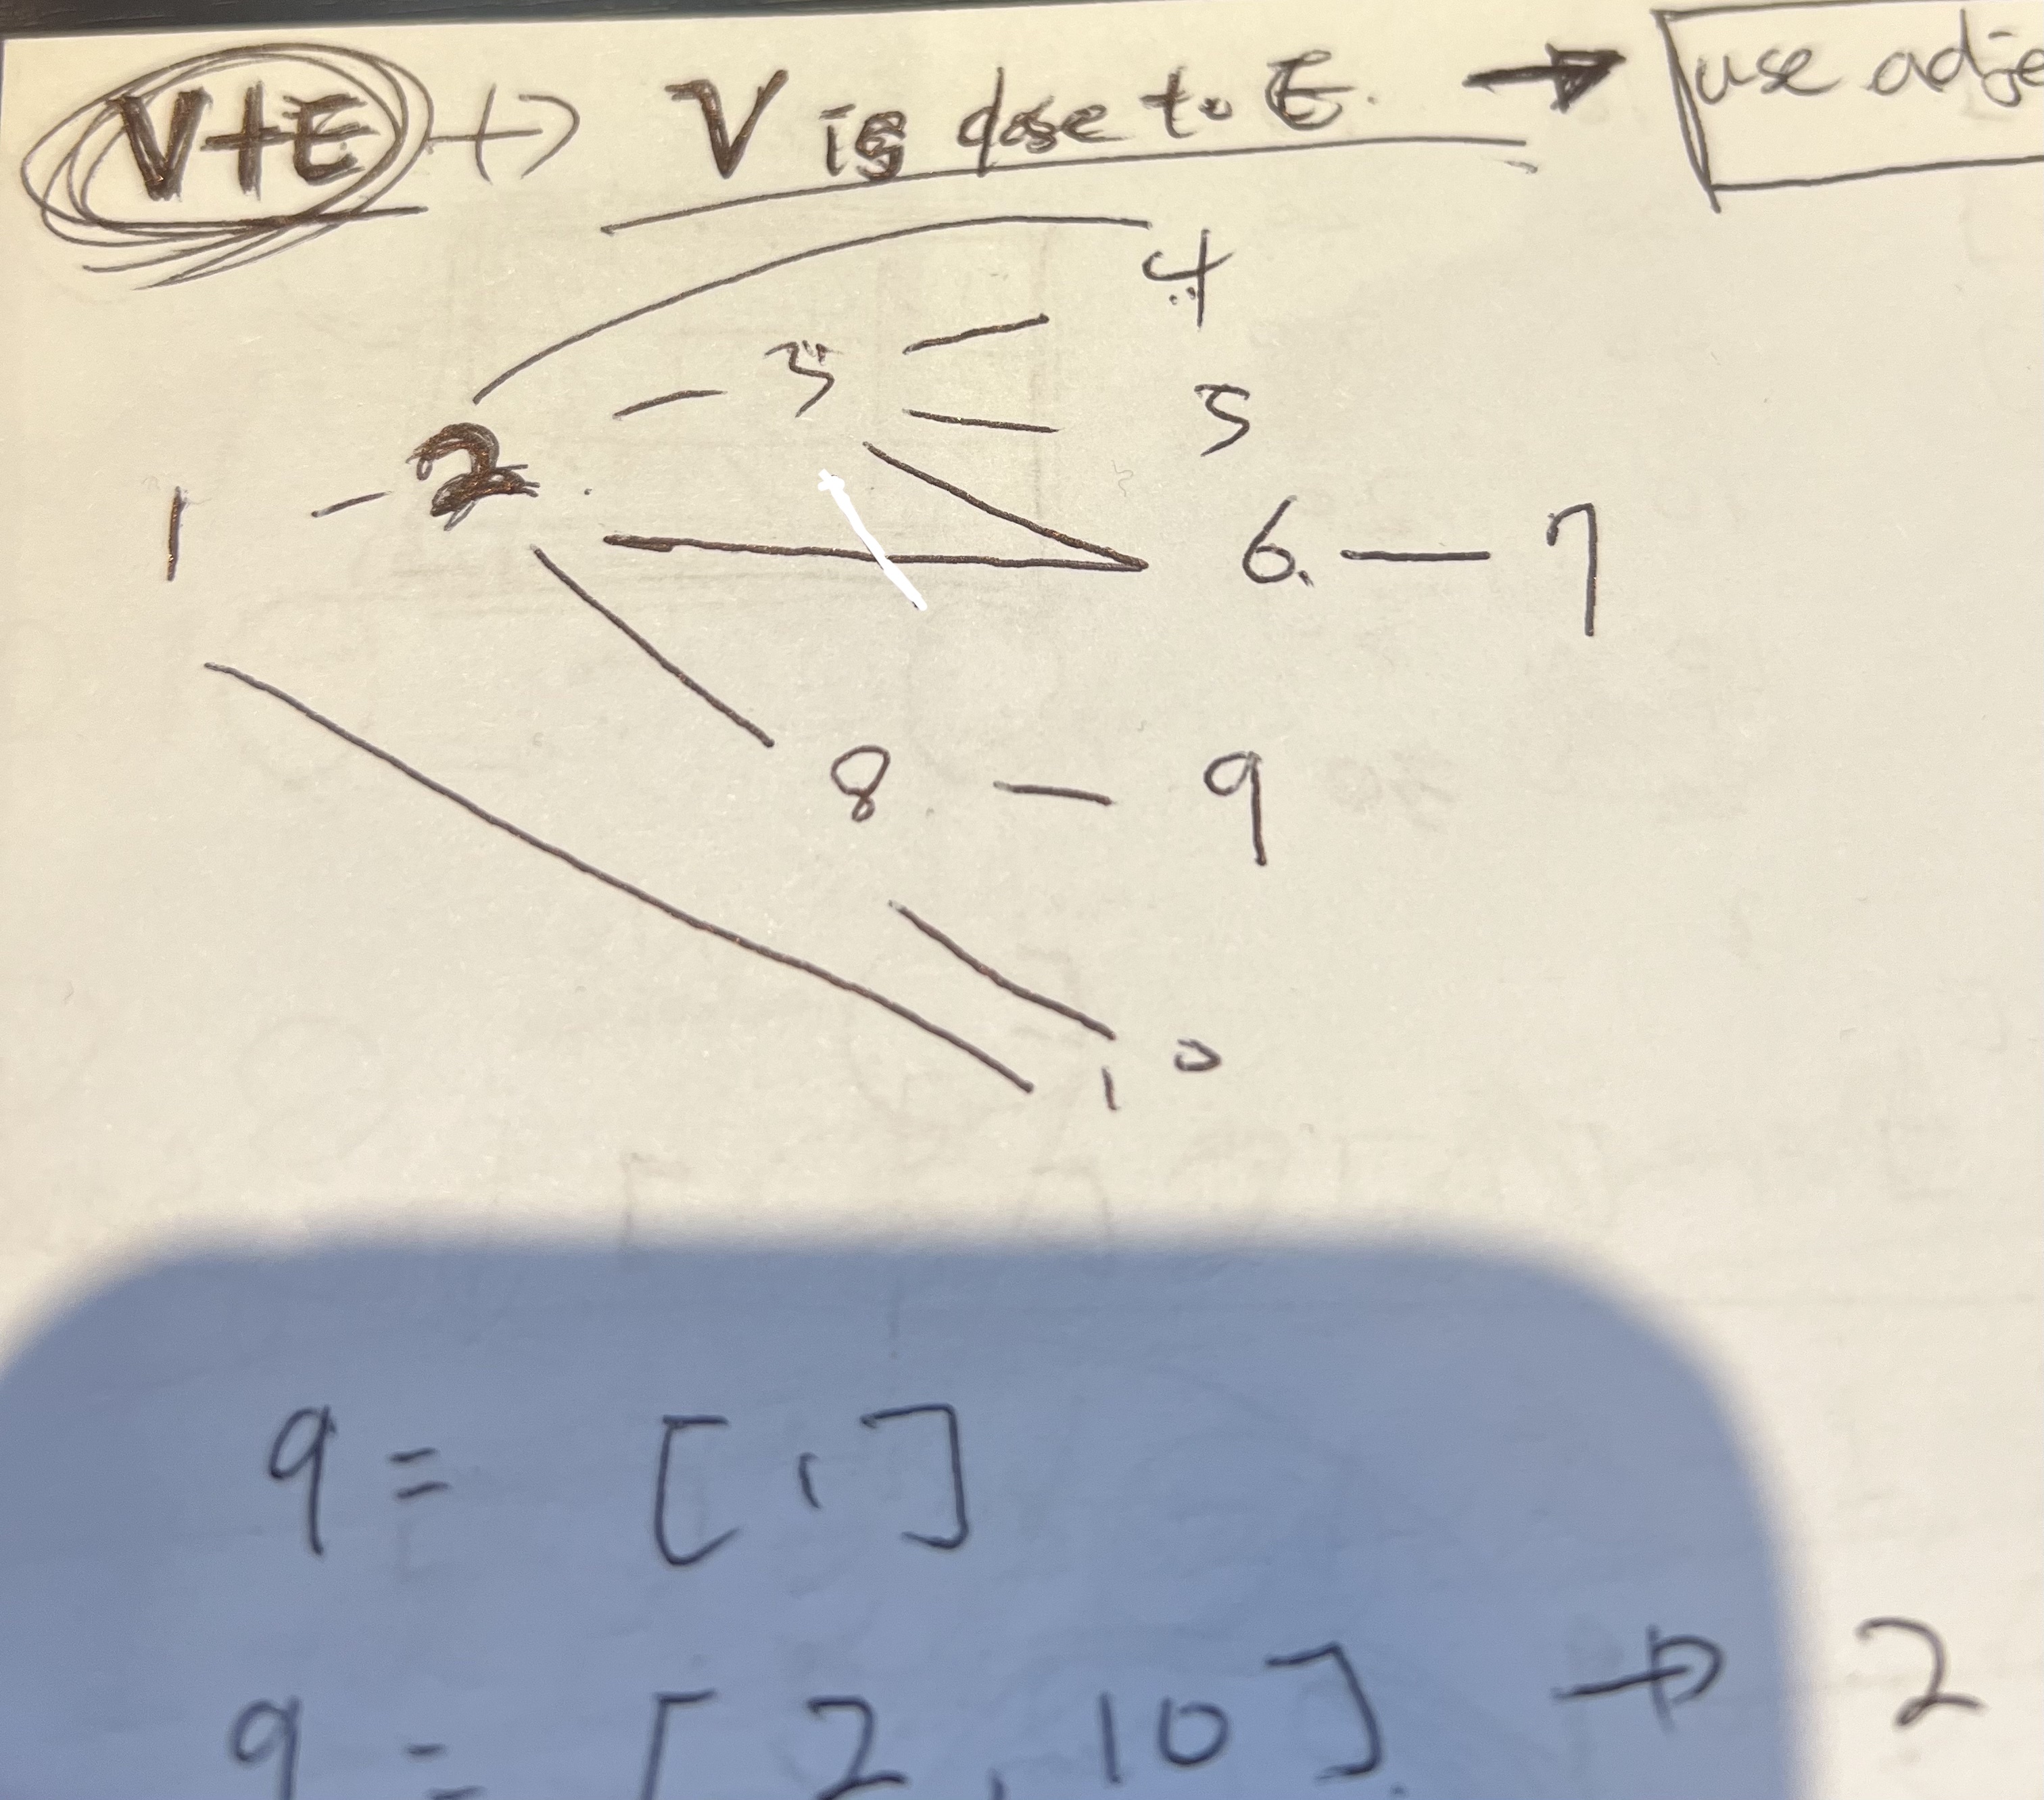 V+E → V is close to E. → use adje
4
3
5
2
1
6 — 7
8 — 9
10
q = [1]
q = [2, 10] → 2